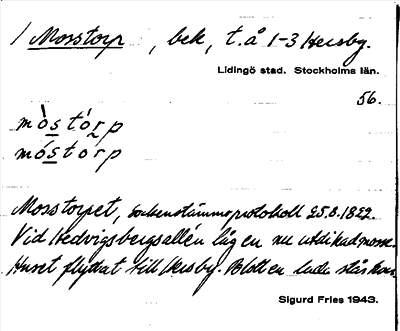 1 Mosstorp, bek, t. å 1-3 Hersby.
Lidingö stad. Stockholms län.
56.
mòstórp
móstórp
Mosstorpet, sockenstämmoprotokoll 25.8.1822.
Vid Hedvigsbergsallén låg en nu utdikad mosse.
Huset flyttat till Hersby. Blott en lada står kvar.
Sigurd Fries 1943.